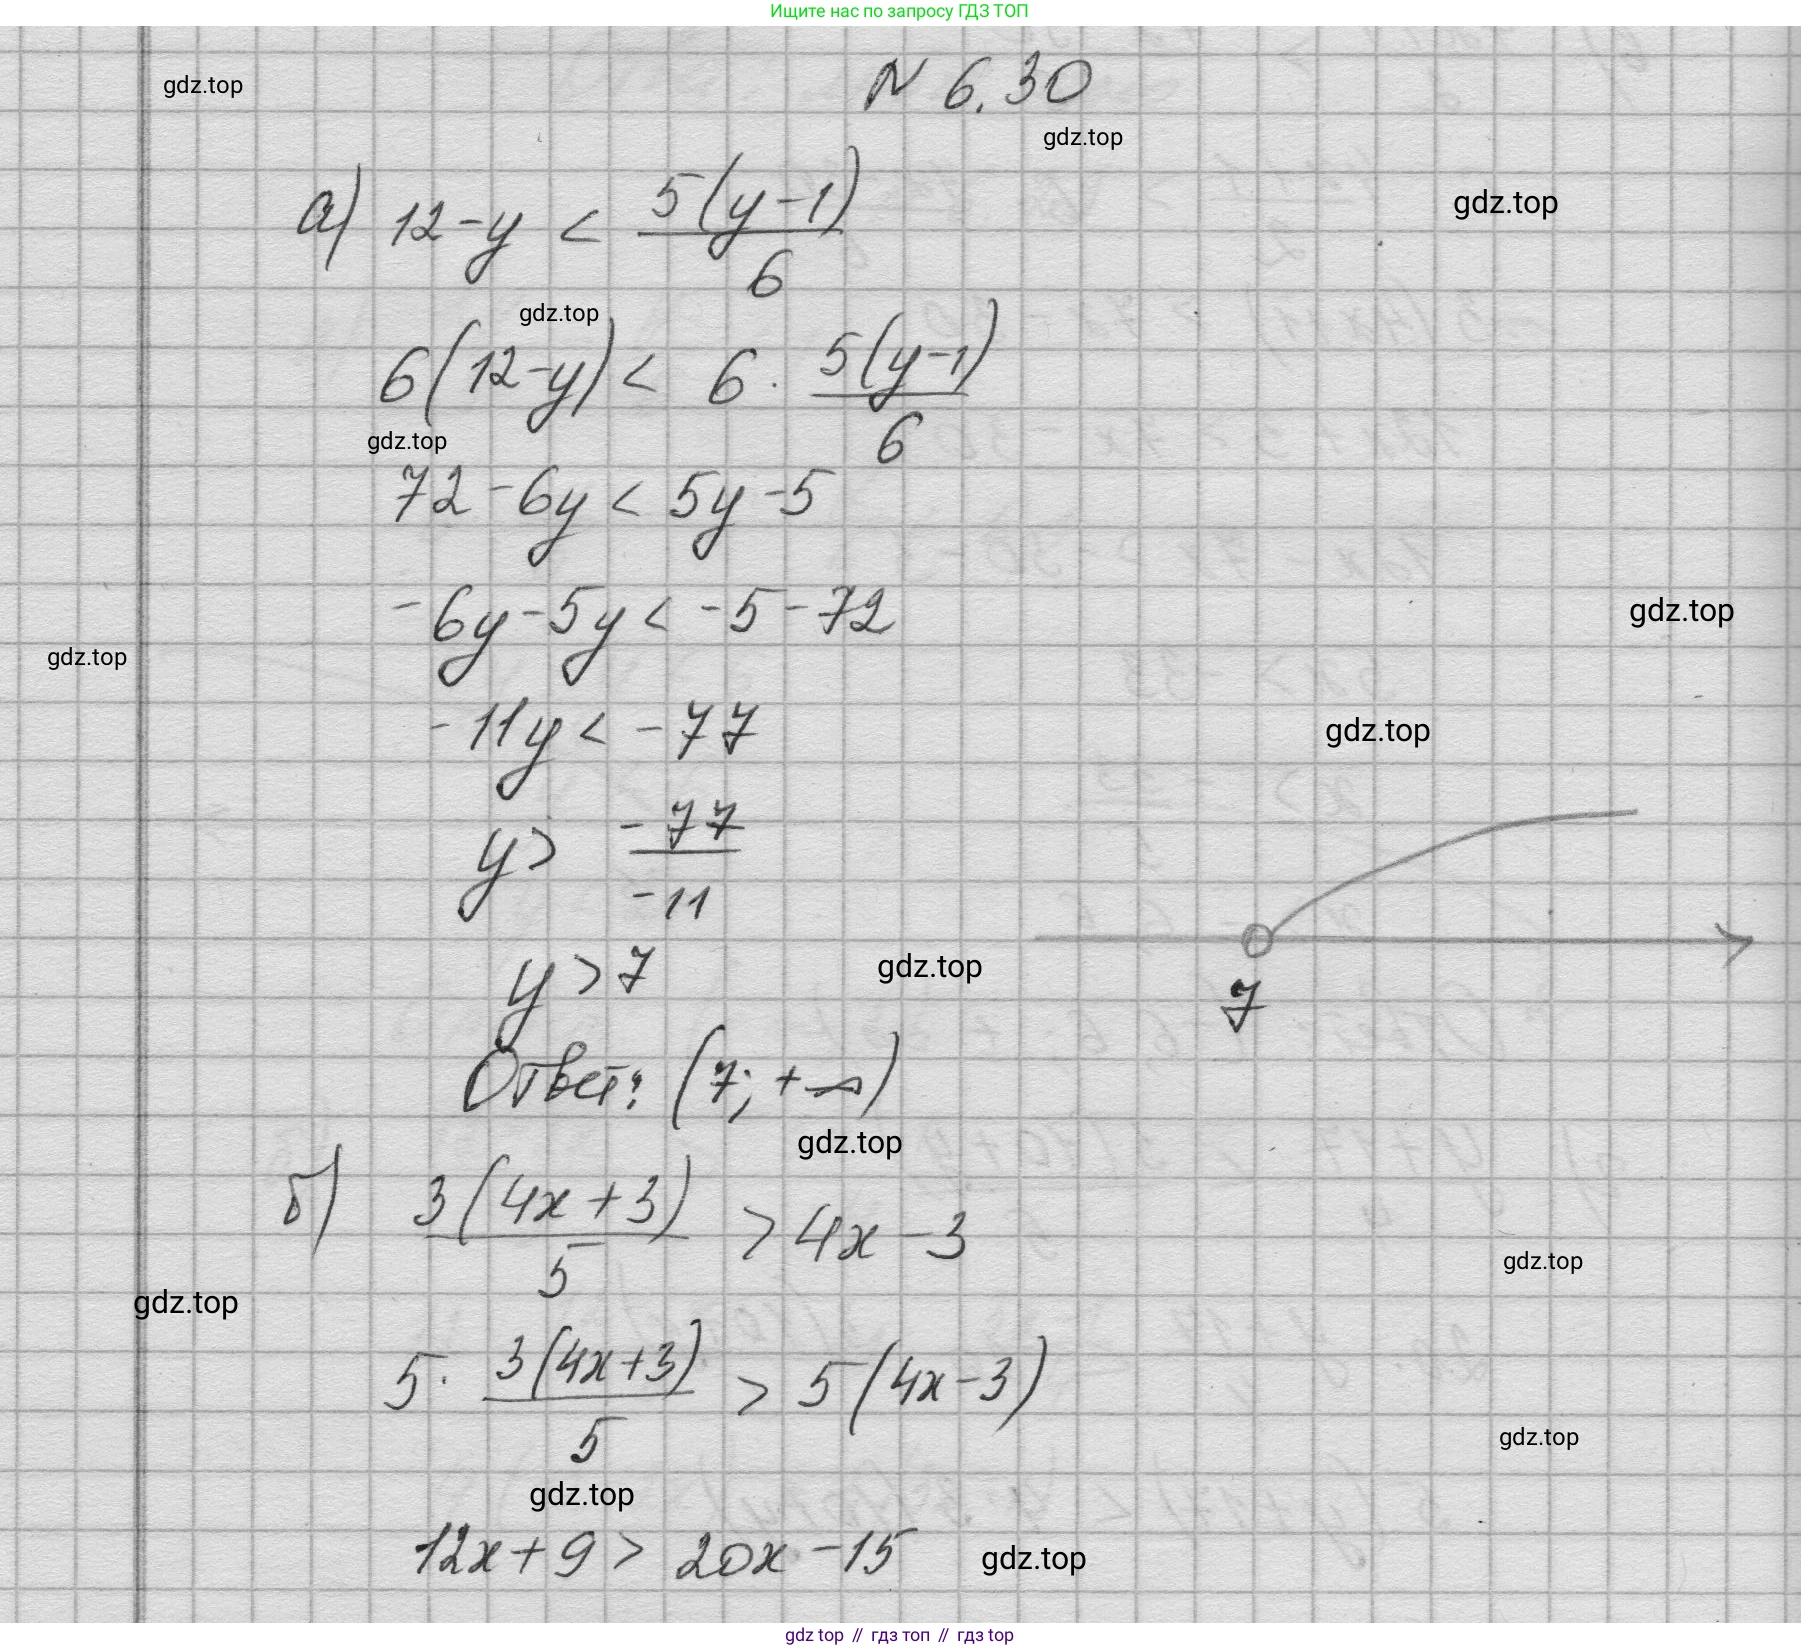 Ищите нас по запросу ГДЗ ТОП
N 6.30
gdz.top
gdz.top
gdz.top
а) 12-y < 5(y-1)/6
gdz.top
6(12-y) < 6 · 5(y-1)/6
gdz.top
72-6y < 5y-5
-6y-5y < -5-72
gdz.top
gdz.top
-11y < -77
gdz.top
y > -77/-11
y > 7
gdz.top
7
Ответ: (7; +∞)
gdz.top
б) 3(4x+3)/5 > 4x-3
gdz.top
gdz.top
5 · 3(4x+3)/5 > 5(4x-3)
gdz.top
gdz.top
12x+9 > 20x-15
gdz.top
gdz top // гдз топ // гдз top